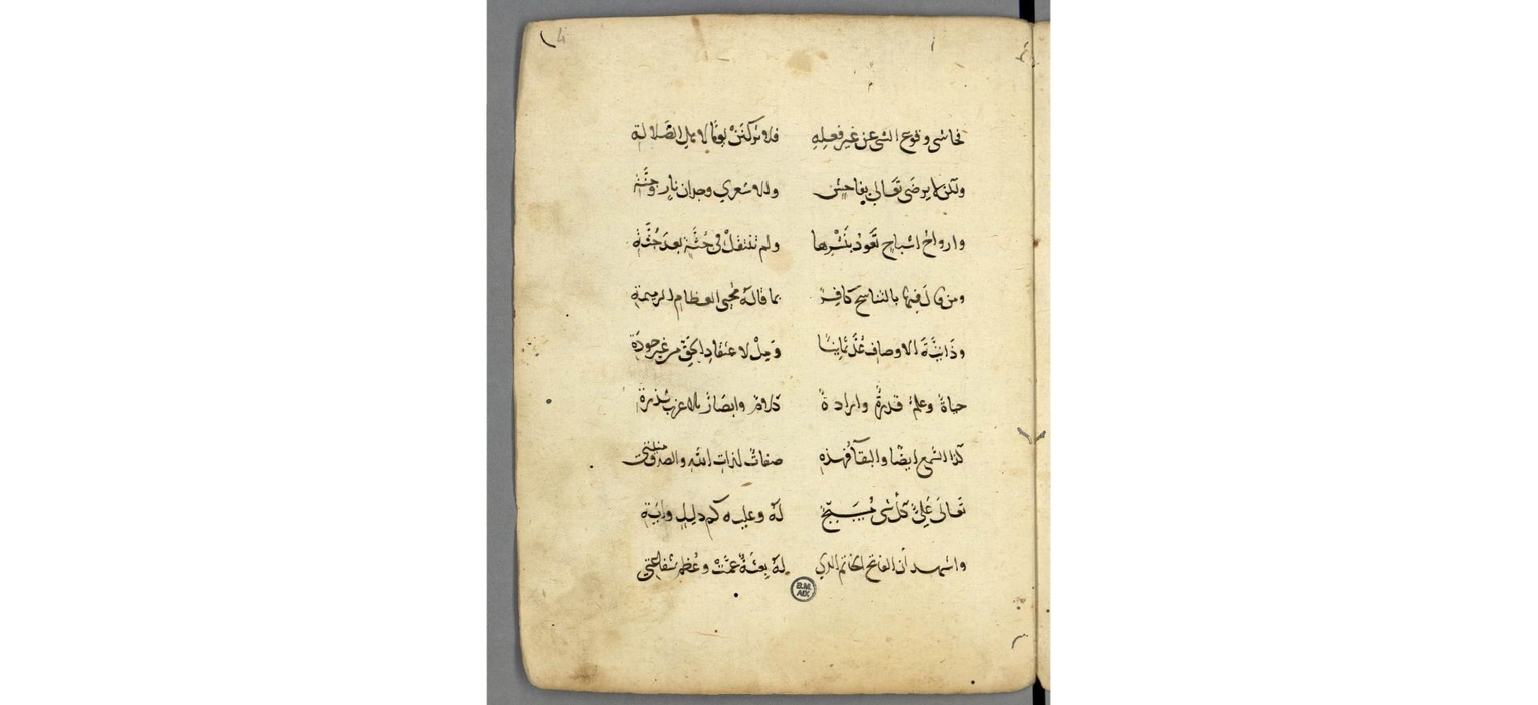 فحاشى وقوع الشى عن غير فعله فلا تركنن يوما لاهل الضلالة
ولكن لا يرضى تعالى بفاحش ولله شعري وجدان نار وجنة
وارواح اشباح تعود بنشرها ولم تنتقل فى جثة بعد جثة
ومن قال فيها بالتناسخ كافر بما قاله محيى العظام الرميمة
الاوصاف ومل لاعتقاد الحق من غير
حياة وعلم قدرة وارادة كلام وابصار
كذا السمع ايضا والبقا فهذه صفات لذات الله
تعالى على كل شى مسبح له وعليه كم دليل واية
واشهد أن الفاتح الخاتم الذي له بعثة عمت وعظم شفاعتى
B.M.
AIX